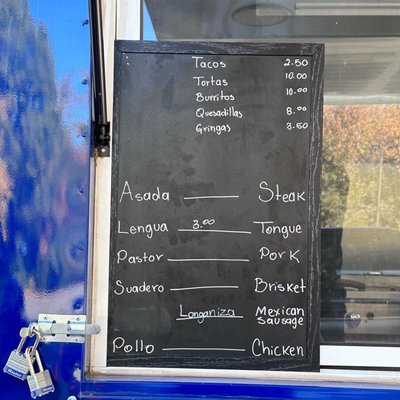 Tacos 2.50
Tortas 10.00
Burritos 10.00
Quesadillas 8.00
Gringas 3.50
Asada Steak
Lengua 3.00 Tongue
Pastor Pork
Suadero Brisket
Longaniza Mexican Sausage
Pollo Chicken
Master